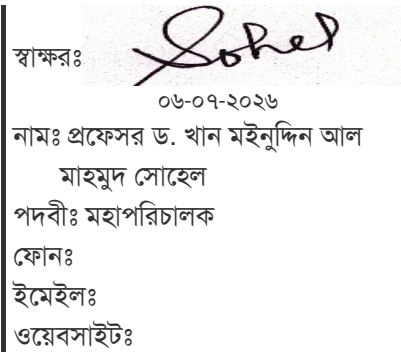 স্বাক্ষরঃ Sohel
০৬-০৭-২০২৬
নামঃ প্রফেসর ড. খান মইনুদ্দিন আল
মাহমুদ সোহেল
পদবীঃ মহাপরিচালক
ফোনঃ
ইমেইলঃ
ওয়েবসাইটঃ